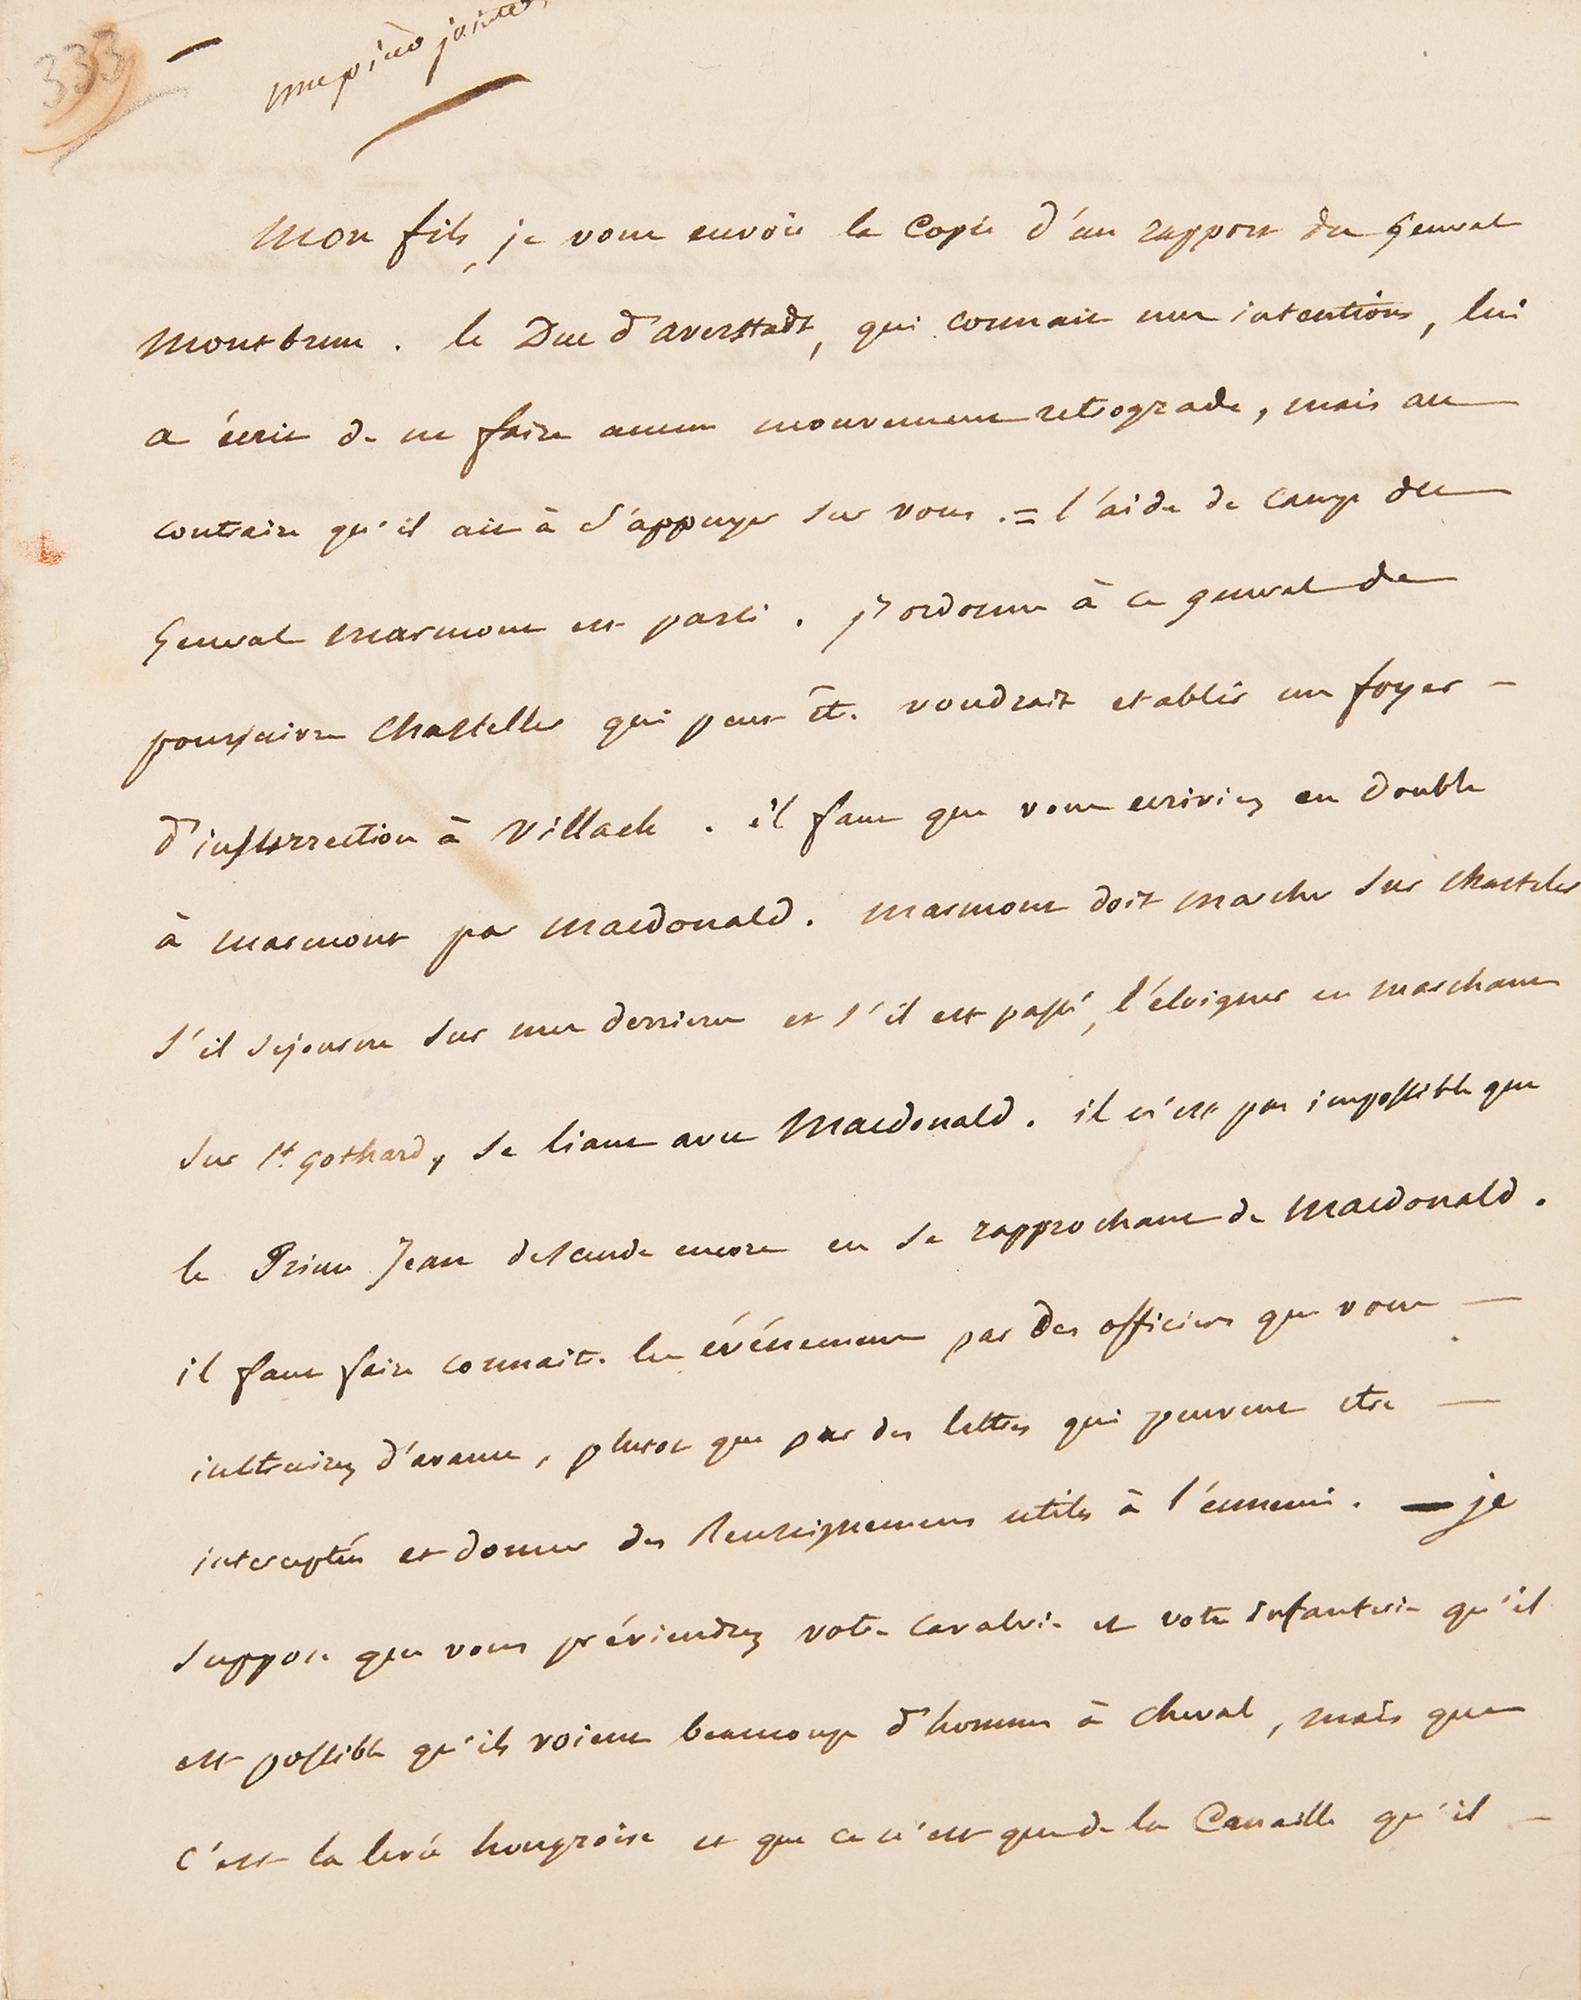 333
une pièce jointe
Mon fils, je vous envoie la Copie d'un rapport du General
Montbrun . le Duc d'averstadt, qui connait mes intentions, lui
a écrit de ne faire aucun mouvement retrograde, mais au
contraire qu'il ait à s'appuyer sur vous . = l'aide de camp du
General Marmont est parti . J'ordonne à ce general de
poursuivre Chasteller qui peut êt. voudrait etablir un foyer -
d'insurrection à Villach . il faut que vous ecriviez en double
à Marmont par Macdonald . Marmont doit marcher sur Chasteler
s'il sejourne sur mes derrieres et s'il est passé, l'éloigner en marchant
sur St. Gothard, se liant avec Macdonald . il n'est pas impossible que
le Prince Jean descende encore en se rapprochant de Macdonald .
il faut faire connait. les événemens par des officiers que vous —
instruirez d'avance, plutot que par des lettres qui peuvent etre —
interceptées et donner des Renseignemens utiles à l'ennemi . — je
suppose que vous préviendrez votre Cavalerie et votre infanterie qu'il
est possible qu'ils voient beaucoup d'hommes à cheval, mais que
c'est la levée hongroise et que ce n'est que de la Canaille qu'il —